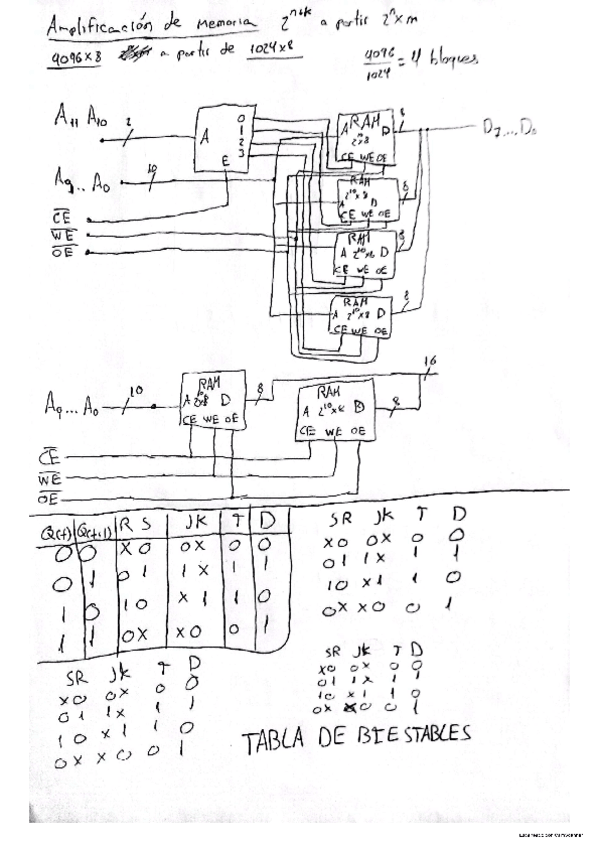 Amplificación de memoria 2^n+k a partir 2^n x m
4096 x 8 a partir de 1024 x 8
4096/1024 = 4 bloques
A11 A10 2 A 0 1 2 3 E
A9... A0 10
CE
WE
OE
A RAM D 2^n x 8 CE WE OE 8 D7...D0
RAM A 2^10 x 8 D CE WE OE 8
RAM A 2^10 x 8 D CE WE OE 8
RAM A 2^10 x 8 D CE WE OE 8
A9... A0 10 RAM A 2^10 x 8 D CE WE OE 8
RAM A 2^10 x 8 D CE WE OE 8 16
CE
WE
OE
Q(t) Q(t+1) R S JK T D
0 0 X0 0X 0 0
0 1 01 1X 1 1
1 0 10 X1 1 0
1 1 0X X0 0 1
SR JK T D
X0 0X 0 0
01 1X 1 1
10 X1 1 0
0X X0 0 1
SR JK T D
X0 0X 0 0
01 1X 1 1
10 X1 1 0
0X X0 0 1
SR JK T D
X0 0X 0 0
01 1X 1 1
10 X1 1 0
0X X0 0 1
TABLA DE BIESTABLES